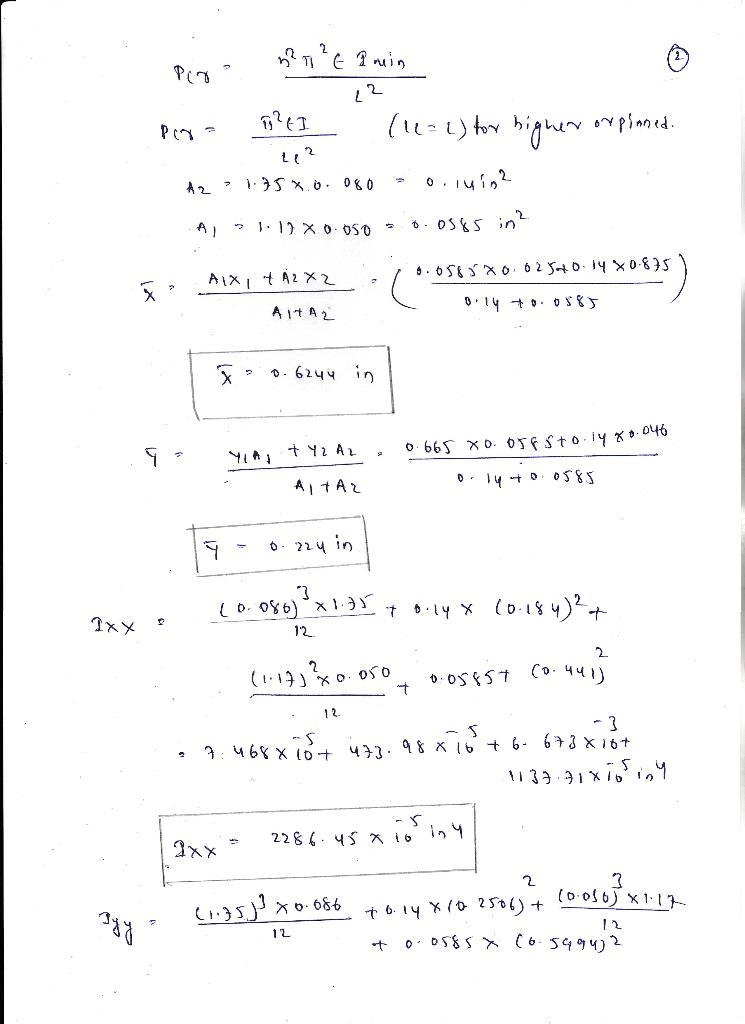 ②
Pcr = n²π² E Imin / L²
Pcr = π²EI / Le² (le = L) for higher or pinned.
A2 = 1.75 x 0.080 = 0.14in²
A1 = 1.17 x 0.050 = 0.0585 in²
x̄ = A1x1 + A2x2 / A1+A2 = ( 0.0585x0.025+0.14x0.875 / 0.14 + 0.0585 )
x̄ = 0.6244 in
ȳ = y1A1 + y2A2 / A1+A2 = 0.665 x0.0585+0.14x0.046 / 0.14+0.0585
ȳ = 0.224 in
Ixx = (0.080)³x1.75 / 12 + 0.14x (0.184)² +
(1.17)²x0.050 / 12 + 0.0585+ (0.441)²
= 7.468x10⁻⁵+ 473.98x10⁻⁵ + 6.673x10⁻³+
1137.71x10⁻⁵in4
Ixx = 2286.45 x 10⁻⁵ in4
Iyy = (1.75)³x0.086 / 12 + 0.14x(0.2506)² + (0.050)³x1.17 / 12
+ 0.0585x (0.5994)²